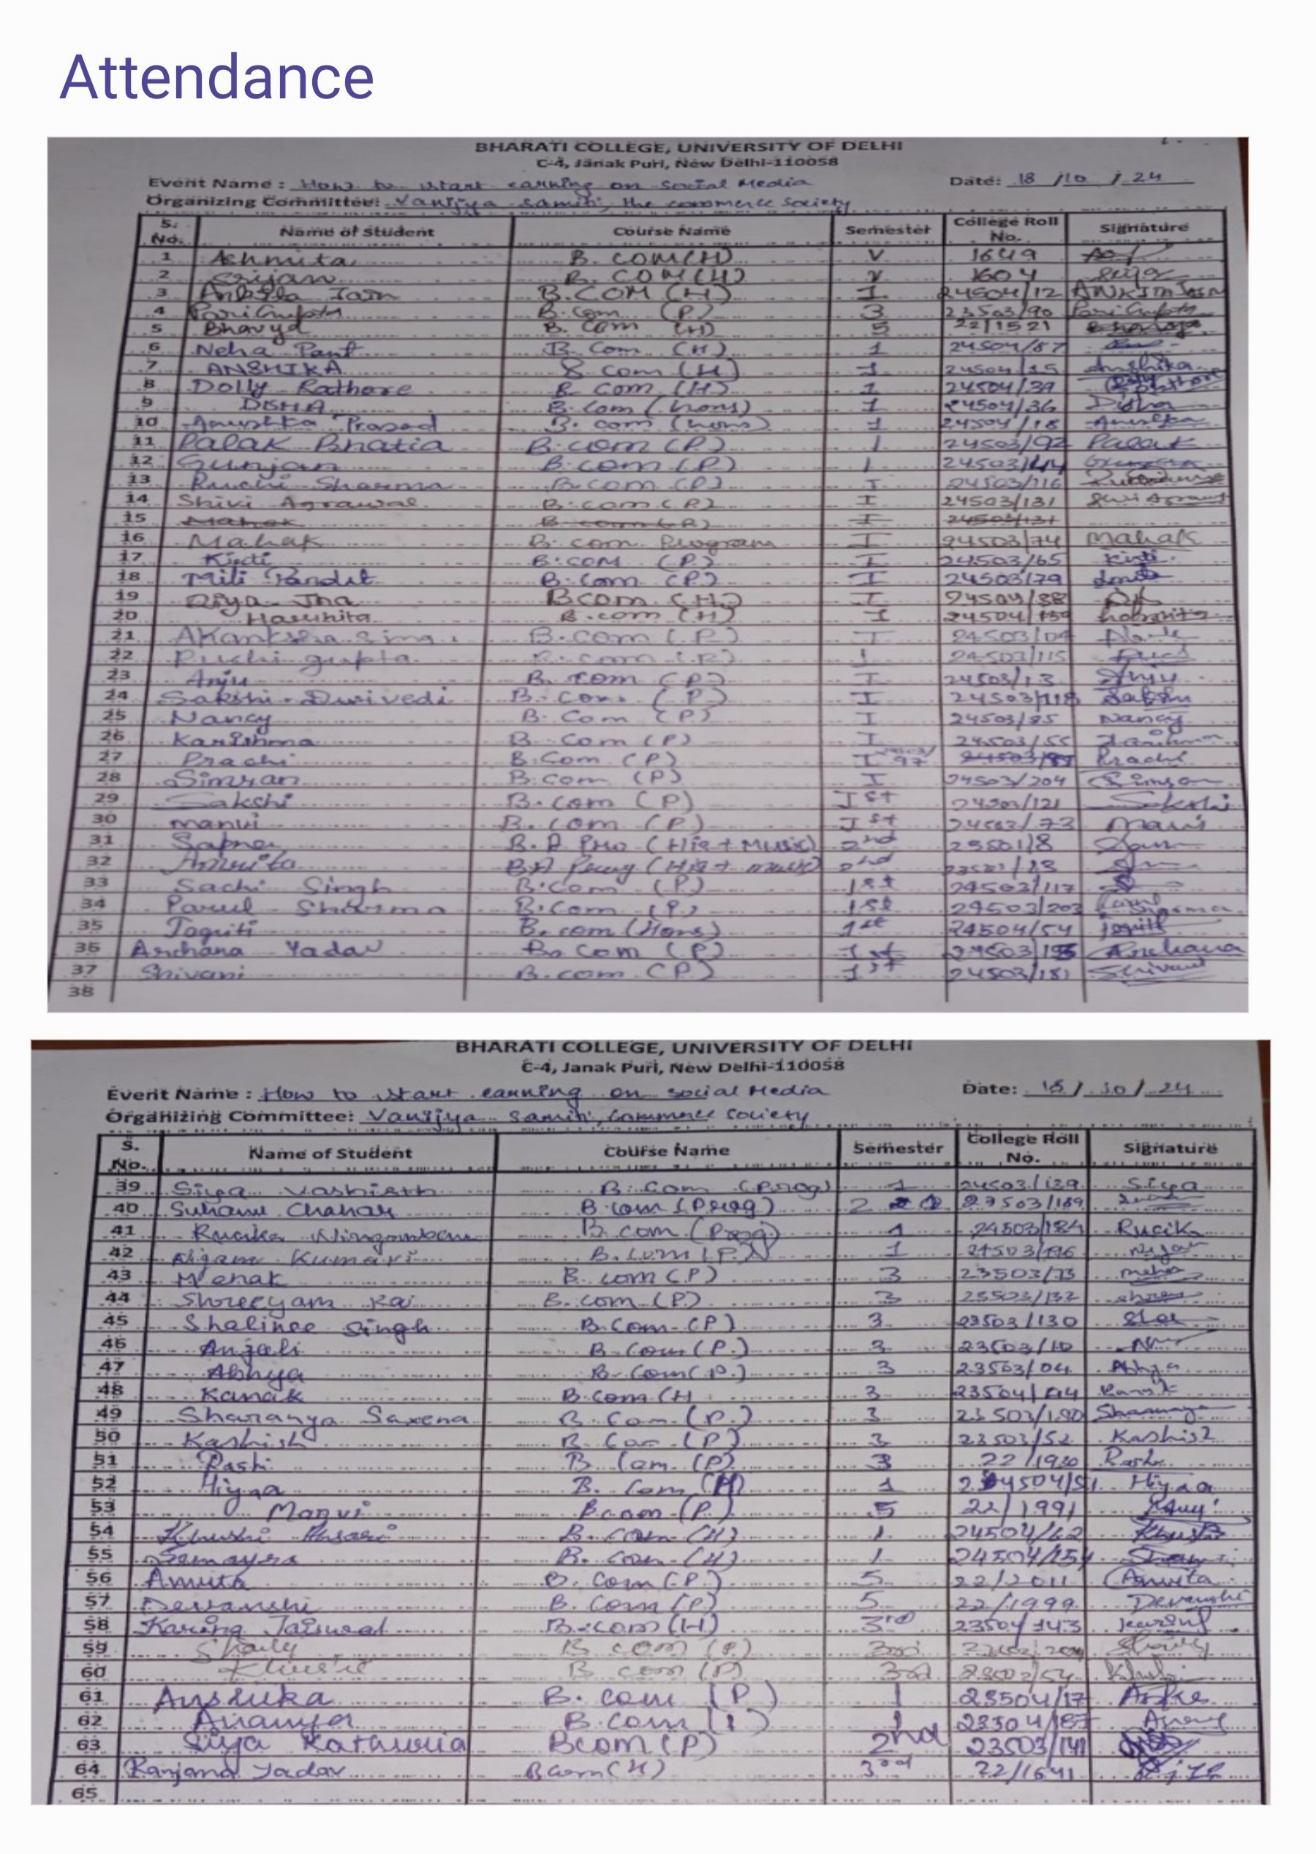 Attendance
BHARATI COLLEGE, UNIVERSITY OF DELHI
C-4, Janak Puri, New Delhi-110058
Event Name : How to start earning on social Media Date: 18 /10 / 24
Organizing Committee: Vanijya samiti, the commerce society
S. No. Name of Student Course Name Semester College Roll No. Signature
1 Ashmita B. COM(H) V 1649
2 Srijan B. COM(H) V 1604
3 Ankita Jain B.COM (H) 1 24504/12 ANKITA JAIN
4 Pari Gupta B.Com (P) 3 23503/90 Pari Gupta
5 Bhavya B. Com (H) 5 22/1521
6 Neha Pant B Com (H) 1 24504/87
7 ANSHIKA B Com (H) 1 24504/15 Anshika
8 Dolly Rathore B Com (H) 1 24504/39
9 DISHA B. Com (hons) 1 24504/36 Disha
10 Anushka Prasad B. com (hons) 1 24504/18 Anushka
11 Palak Bhatia B.com (P) 1 24503/92 Palak
12 Gunjan B.com (P) 1 24503/44 Gunjan
13 Ruchi Sharma B.com (P) I 24503/116
14 Shivi Agrawal B.com (P) I 24503/131
15 Mahak B com (P) I 24503/131
16 Mahak B. com Program I 24503/74 Mahak
17 Kirti B.com (P) I 24503/65 Kirti
18 Mili Pandit B.Com (P) I 24503/79
19 Riya Jha BCom (H) I 24504/88
20 Harshita B.com (H) I 24504/
21 Akanksha B.com (P) I 24503/04
22 Ruchi gupta B.com (P) 1 24503/115
23 Anju B. Com (P) I 24503/13 Anju
24 Sakshi Dwivedi B. Com (P) I 24503/118 Sakshi
25 Nancy B. Com (P) I 24503/85 Nancy
26 Karishma B. Com (P) I 24503/55
27 Prachi B.Com (P) I 97 Prachi
28 Simran B.com (P) I 24503/204 Simran
29 Sakshi B.com (P) Ist 24503/121 Sakshi
30 Manvi B. Com (P) Ist 24503/73
31 Sapna B. A Pro (His + Music) 2nd
32 Amrita B.A (His + music) 2nd
33 Sachi Singh B.com (P) 1st 24503/117
34 Parul Sharma B.Com (P) 1st 24503/203 Parul Sharma
35 Jagriti B. com (Hons) 1st 24504/54
36 Archana Yadav B. Com (P) 1st Archana
37 Shivani B.com (P) 1st 24503/181 Shivani
38
BHARATI COLLEGE, UNIVERSITY OF DELHI
C-4, Janak Puri, New Delhi-110058
Event Name : How to start earning on social Media Date: 18 / 10 / 24
Organizing Committee: Vanijya samiti, commerce society
S. No. Name of Student Course Name Semester College Roll No. Signature
39 Siya Vashisth B. Com (Prog) 1 24503/139 Siya
40 Suhani Chahar B.com (Prog) 2 23503/169
41 B.com (Prog) 1 24503/184
42 Nigam Kumari B.com (P) 1 24503/196
43 Mehak B com (P) 3 23503/73
44 Shreeyam Rai B.com (P) 3 23503/132
45 Shalinee Singh B.Com (P) 3 23503/130
46 Anjali B.Com (P) 3 23503/10
47 Abhya B.Com (P) 3 23503/04 Abhya
48 Kanak B.com (H 3 23504/
49 Sharanya Saxena B. Com (P) 3 23503/180 Sharanya
50 Kashish B. Com (P) 3 23503/52 Kashish
51 Rashi B Com (P) 3 22/1930
52 Hiyaa B. Com (H) 1 24504/51 Hiyaa
53 Manvi B.com (P) 5 22/1991
54 Khushi B. Com (H) 1 24504/62 Khushi
55 B. Com (H) 1 24504/154
56 Amrita B. Com (P) 5 22/2011 Amrita
57 Devanshi B. Com (P) 5 22/1999 Devanshi
58 Jaiswal B.com (H) 3rd 23504/143
59 Shaily B com (P) 3rd
60 Khushi B com (P) 3rd
61 Anshika B. com (P) 1 23504/17
62 Ananya B.com 1
63 Siya Kathuria Bcom (P) 2nd 23503/141
64 Ranjana Yadav B com (H) 3rd 22/1641
65